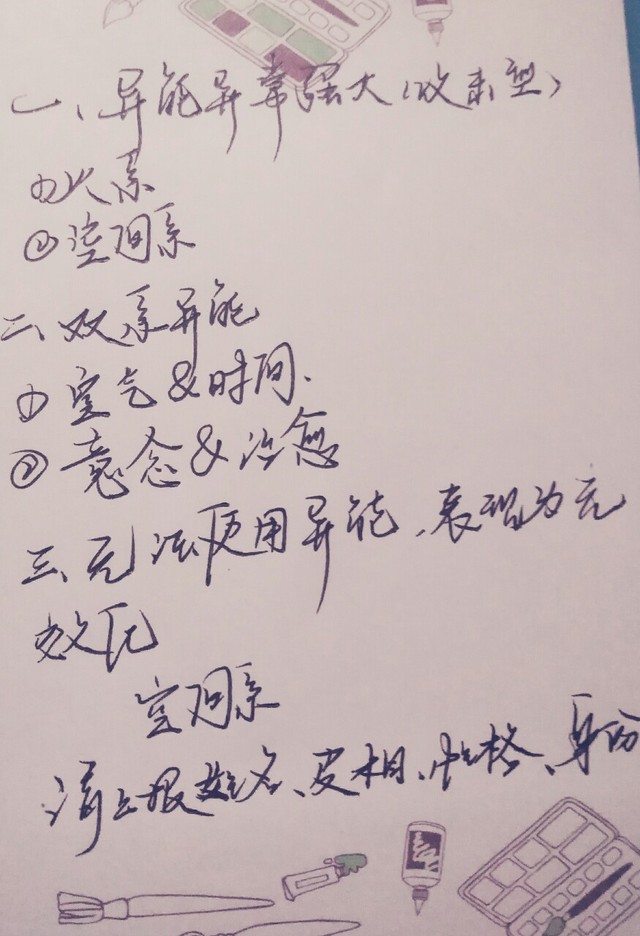 一、异能异常强大(攻击型)
①火系
②空间系
二、双系异能
①空气&时间.
②意念&治愈
三、无法使用异能,表现为无
效化
空间系
请上报姓名、皮相、性格、身份